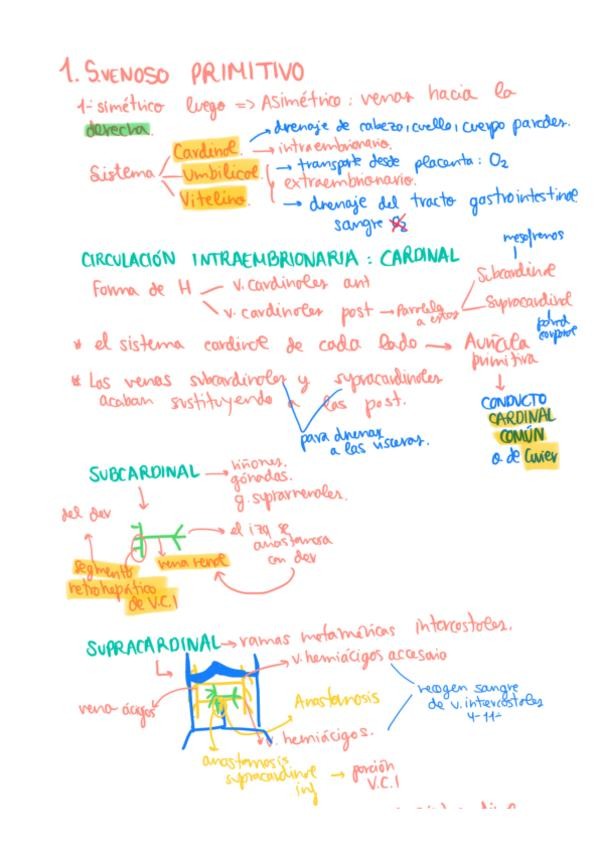 1. S VENOSO PRIMITIVO
1- simétrico luego => Asimétrico: venas hacia la
derecha.
Sistema
Cardinal. → drenaje de cabeza, cuello, cuerpo paredes.
→ intraembrionario.
Umbilical. → transporte desde placenta: O2
extraembrionario.
Vitelino. → drenaje del tracto gastrointestinal
sangre O2
CIRCULACIÓN INTRAEMBRIONARIA: CARDINAL
mesofrenos
Forma de H
v. cardinales ant
v. cardinales post → Paralela a estas
Subcardinal
Supracardinal
pared corporal
* el sistema cardinal de cada lado → Aurícula
primitiva
* Las venas subcardinales y supracardinales
acaban sustituyendo a las post.
para drenar
a las vísceras.
CONDUCTO
CARDINAL
COMÚN
o de Cuvier
SUBCARDINAL → riñones.
gónadas.
g. suprarrenales.
del der
el izq se
anastomosa
con der
vena renal
segmento
retrohepático
de V.C.I
SUPRACARDINAL → ramas metaméricas intercostales.
v. hemiácigos accesorio
vena ácigos
Anastomosis
recogen sangre
de v. intercostales
4-11-
v. hemiácigos.
anastomosis
supracardinal
inf
→ porción
V.C.I